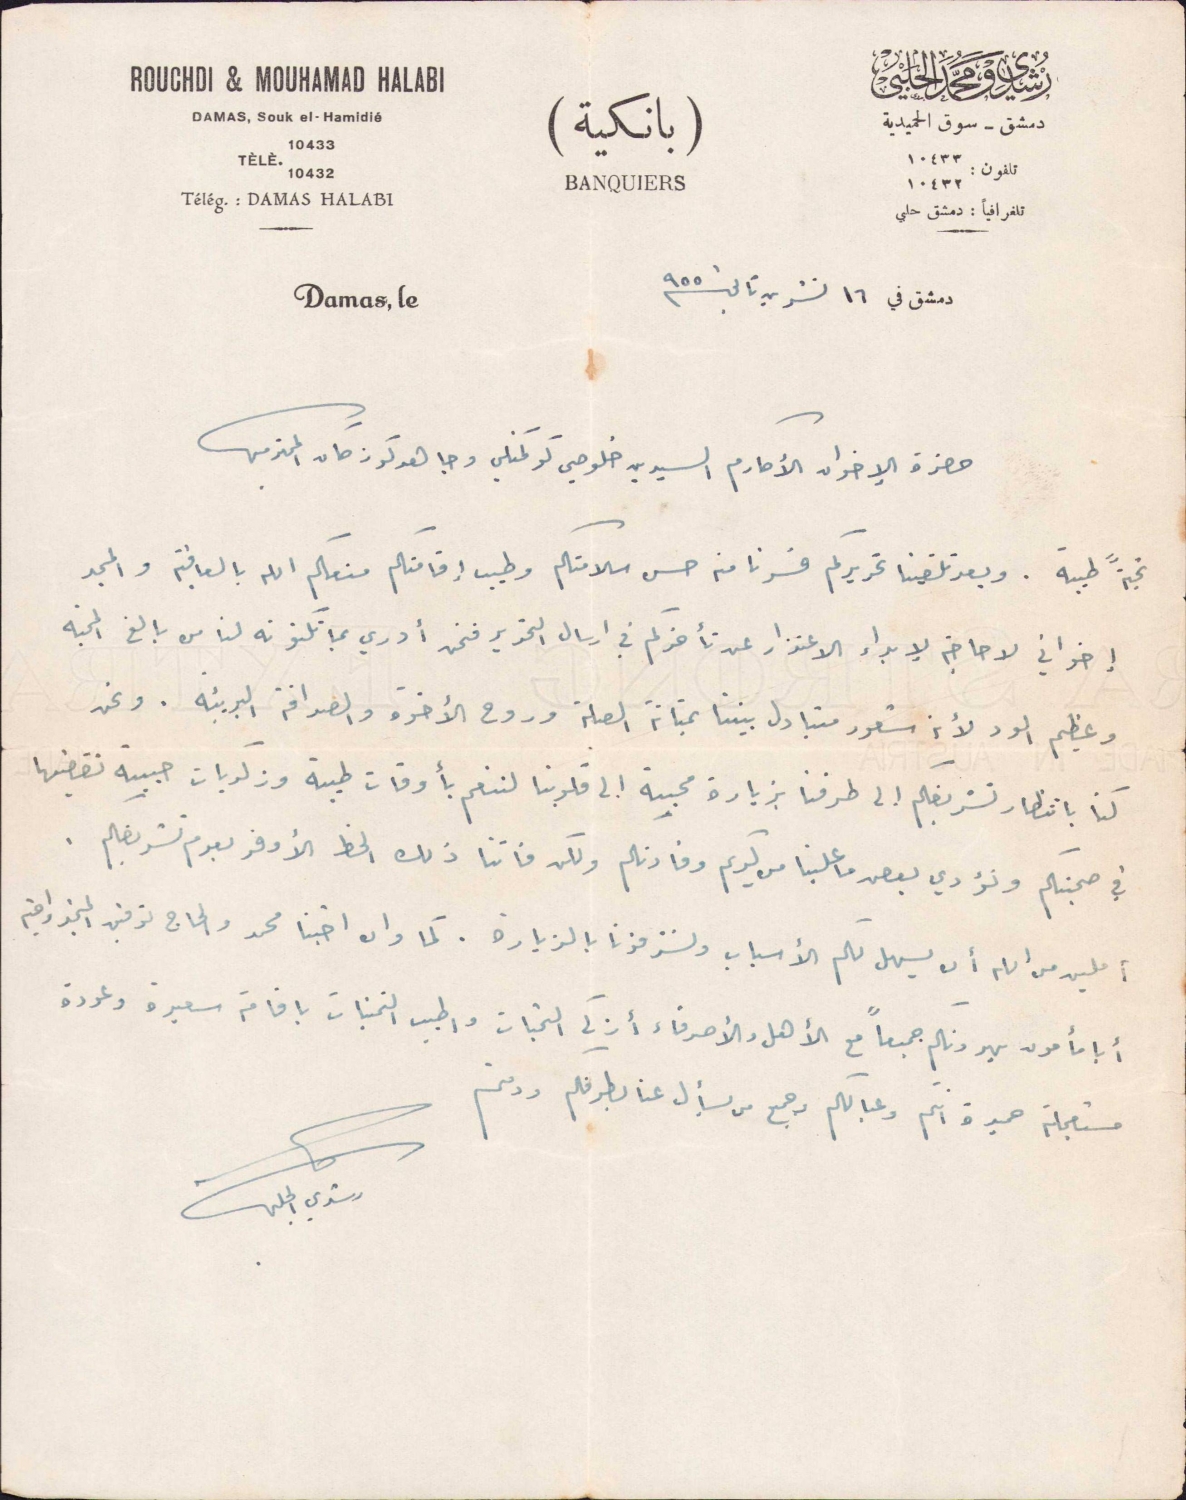 ROUCHDI & MOUHAMAD HALABI
DAMAS, Souk el-Hamidié
TÈLÈ. 10433
10432
Télég. : DAMAS HALABI
(بانكية)
BANQUIERS
رشدي ومحمد الحلبي
دمشق ـ سوق الحميدية
تلفون : ١٠٤٣٣
١٠٤٣٢
تلغرافياً : دمشق حلبي
Damas, le
دمشق في ١٦ تشرين ثاني ٩٥٥
حضرة الإخوان الأكارم السيدين خلوصي و المحترمين
تحيةً طيبة . وبعد تلقينا تحريركم فسرنا منه حسن سلامتكم وطيب إقامتكم متعكم الله بالعافية و المجد
إخواني لا حاجة لإبداء الاعتذار عن تأخركم في ارسال التحرير فنحن أدرى بما تكنونه لنا من بالغ المحبة
وعظيم الود لأنه شعور متبادل بيننا بمتانة الصلة وروح الأخوة والصداقة البريئة . ونحن
كنا بانتظار تشريفكم الى طرفنا بزيارة محببة الى قلوبنا لننعم بأوقات طيبة وذكريات حبيبة نقضيها
في صحبتكم ونؤدي بعض ما علينا من كريم وفادتكم ولكن فاتنا ذلك الحظ الأوفر بعدم تشريفكم .
آملين من الله أن يسهل لكم الأسباب ولتشرفونا بالزيارة . كما وان اخينا محمد والحاج توفيق
أبا مأمون يهدونكم جميعاً مع الأهل والأصدقاء أزكى التحيات واطيب التمنيات باقامة سعيدة وعودة
مستعجلة حميدة انتم وعيالكم وجميع من يسأل عنا بطرفكم ودمتم
رشدي الحلبي